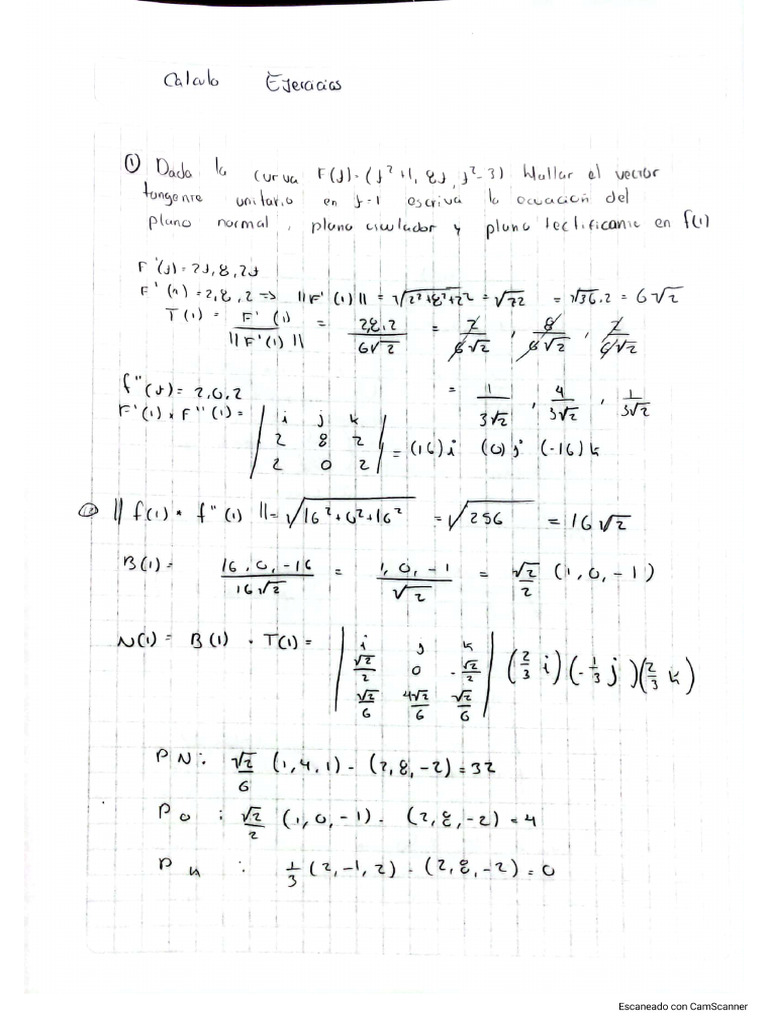 Calculo Ejercicios
① Dada la curva F(t)=(t²+1, 8t, t²-3) Hallar el vector
tangente unitario en t=1 escriva la ecuación del
plano normal, plano osculador y plano rectificante en f(1)
F'(t)=2t,8,2t
F'(1)=2,8,2 => ||F'(1)|| = √2²+8²+2² = √72 = √36.2 = 6√2
T(1) = F'(1) / ||F'(1)|| = 2,8,2 / 6√2 = 2/6√2 , 8/6√2 , 2/6√2
f''(t) = 2,0,2 = 1/3√2 , 4/3√2 , 1/3√2
F'(1) x F''(1) = | i j k | 2 8 2 | 2 0 2 | = (16)i (0)j (-16)k
|| f(1) x f''(1) || = √16²+0²+16² = √256 = 16√2
B(1) = 16,0,-16 / 16√2 = 1,0,-1 / √2 = √2/2 (1,0,-1)
N(1) = B(1) · T(1) = | i j k | √2/2 0 -√2/2 | √2/6 4√2/6 √2/6 | (2/3 i)(-1/3 j)(2/3 k)
PN: √2/6 (1,4,1) - (2,8,-2) = 32
PO: √2/2 (1,0,-1) - (2,8,-2) = 4
PR: 1/3 (2,-1,2) - (2,8,-2) = 0
Escaneado con CamScanner